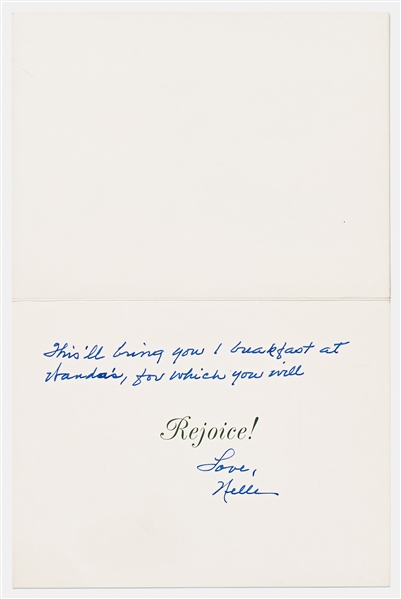 This'll bring you 1 breakfast at
Wanda's, for which you will
Rejoice!
Love,
Nelle